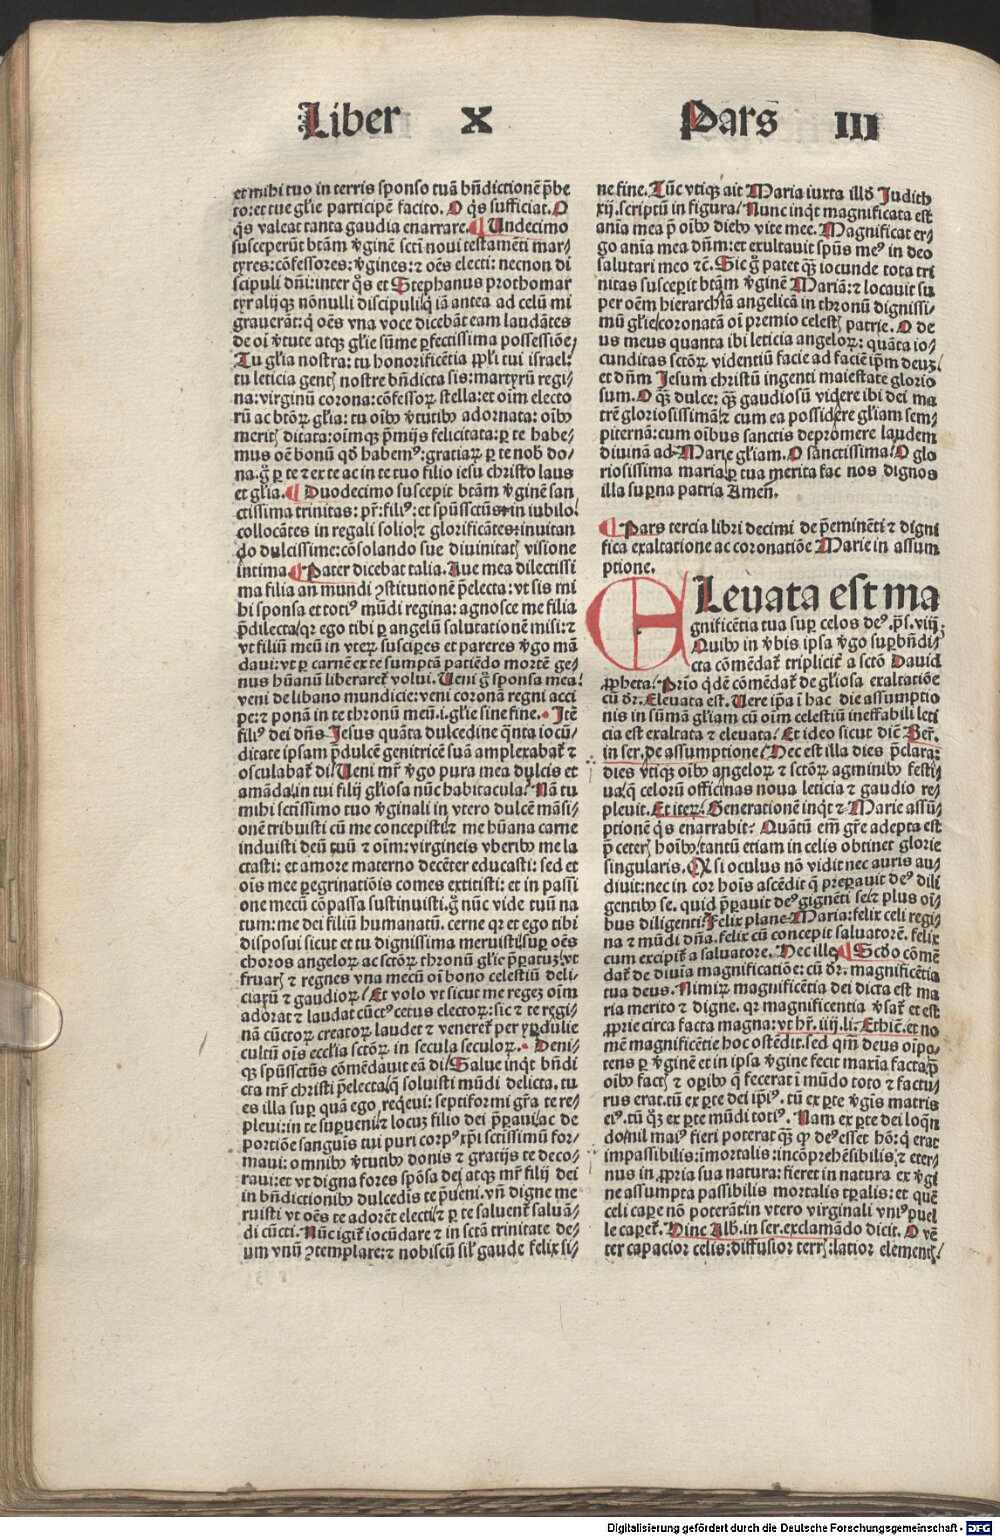 Liber X Pars III
et mihi tuo in terris sponso tuā bn̄dictionē p̄be
to: et tue gl'ie participē facito. O q̇s sufficiat. O
q̇s valeat tanta gaudia enarrare. ¶ Undecimo
susceperūt btām v̄ginē sctī noui testamēti mar/
tyres: cōfessores: v̄gines: ⁊ oēs electi: necnon di
scipuli dn̄i: inter q̇s et Stephanus prothomar
tyr alijqꝫ nōnulli discipuli/ q̇ iā antea ad celū mi
grauerāt: q̇ oēs vna voce dicebāt eam laudātes
de oī v̄tute atqꝫ gl'ie sūme ꝑfectissima possessiōe/
Tu gl'ia nostra: tu honorificētia ppl'i tui israel:
tu leticia gentꝭ nostre bn̄dicta sis: martyrū regi/
na: virginū corona: cōfessoꝝ stella: et oīm electo
rū ac btōꝝ gl'ia: tu oībꝰ v̄tutibꝰ adornata: oībꝰ
meritꝭ ditata: oīmqꝫ p̄mijs felicitata: ꝑ te habe/
mus oē bonū qd̓ habemꝰ: gratiaꝝ ꝑ te nob̓ do/
na. g̊ ꝑ te ⁊ ex te ac in te tuo filio iesu christo laus
et gl'ia. ¶ Duodecimo suscepit btām v̄ginē san
ctissima trinitas: pr̄: filiꝰ: et spūssctūs in iubilo
collocātes in regali solio/ ⁊ glorificātes: inuitan
do dulcissime: cōsolando sue diuinitatꝭ visione
intima. ¶ Pater dicebat talia. Aue mea dilectissi
ma filia an̄ mundi ꝯstitutionē p̄electa: vt sis mi
bi sponsa et totiꝰ mūdi regina: agnosce me filia
p̄dilecta/ qr ego tibi ꝑ angelū salutationē misi: ⁊
vt filiū meū in vteꝝ susciꝑes et pareres v̄go mā
daui: vt ꝑ carnē ex te sumptā patiēdo mortē ge/
nus hūanū liberareꝉ volui. Veni g̊ sponsa mea:
veni de libano mundicie: veni coronā regni acci
pe: ⁊ ponā in te thronū meū. i. gl'ie sine fine. Itē
filiꝰ dei dn̄s Jesus quāta dulcedine q̄nta iocū/
ditate ipsam p̄dulcē genitricē suā amplexabaꝉ ⁊
osculabaꝉ di. Veni mr̄ v̄go pura mea dulcis et
amāda/ in tui filij gl'iosa nūc habitacula. Nā tu
mihi sctīssimo tuo v̄ginali in vtero dulcē māsi/
onē tribuisti cū me concepisti/ ⁊ me hūana carne
induisti deū tuū ⁊ oīm: virgineis vberibꝰ me la
ctasti: et amore materno decēter educasti: sed et
oīs mee ꝑegrinatiōis comes extitisti: et in passi
one mecū cōpassa sustinuisti. g̊ nūc vide tuū na
tum: me dei filiū humanatū. cerne qr et ego tibi
disposui sicut et tu dignissima meruisti/ suꝑ oēs
choros angeloꝝ ac sctōꝝ thronū gl'ie p̄paratuꝫ/ vt
fruarꝭ ⁊ regnes vna mecū oī bono celestiū deli/
ciaꝝū ⁊ gaudioꝝ. Et volo vt sicut me regeꝫ oīm
adorat ⁊ laudat cūctꝰ cetus electoꝝ: sic ⁊ te regi/
nā cūctoꝝ creatoꝝ laudet ⁊ venereꝉ per yꝑdulie
cultū oīs eccl'ia sctōꝝ in secula seculoꝝ. Deni/
qꝫ spūssctūs cōmēdauit eā di. Salue inq̇t bn̄di
cta mr̄ christi p̄electa/ q̇ soluisti mūdi delicta. tu
es illa suꝑ quā ego req̇eui: septiformi gr̄a te re/
pleui: in te suꝑueni/ ⁊ locuꝫ filio dei p̄paraui/ ac de
portiōe sanguīs tui puri corpꝰ xp̄i sctīssimū for/
maui: omnibꝰ v̄tutibꝰ donis ⁊ gratijs te deco/
raui: et vt digna fores spōsa dei atqꝫ mr̄ filij dei
in bn̄dictionibꝰ dulcedīs te p̄ueni. vn̄ digne me
ruisti vt oēs te adorēt electi/ ⁊ ꝑ te salueꝉ saluā/
di cūcti. Nūc igiꝉ iocūdare ⁊ in sctā trinitate de/
um vnū ꝯtemplare: ⁊ nobiscū sil' gaude felix si/
ne fine. Tūc vtiqꝫ ait Maria iuxta illd̓ Judith
xij. scriptū in figura. Nunc inq̇t magnificata est
anīa mea p̄ oībꝰ diebꝰ vite mee. Magnificat er/
go anīa mea dn̄m: et exultauit spūs meꝰ in deo
salutari meo ⁊c̄. Sic g̊ patet qꝫ iocunde tota tri
nitas suscepit btām v̄ginē Mariā: ⁊ locauit su
per oēm hierarchiā angelicā in thronū dignissi/
mū gl'ie/ coronatā oī premio celestꝭ patrie. O de
us meus quanta ibi leticia angeloꝝ: quāta io/
cunditas sctōꝝ videntiū facie ad faciē ip̄m deuꝫ/
et dn̄m Jesum christū ingenti maiestate glorio
sum. O qꝫ dulce: qꝫ gaudiosū videre ibi dei ma
trē gloriosissimā/ ⁊ cum ea possidere gl'iam sem/
piternā: cum oībus sanctis depromere laudem
diuinā ad Marie gl'iam. O sanctissima/ O glo
riosissima maria ꝑ tua merita fac nos dignos
illa suꝑna patria Amen.
¶ Pars tercia libri decimi de p̄eminēti ⁊ digni
fica exaltatione ac coronatiōe Marie in assum
ptione.
ELeuata est ma
gnificētia tua suꝑ celos deꝰ. ps̄. viij.
Quibꝰ in v̄bis ipsa v̄go suꝑbn̄di/
cta cōmēdaꝉ tripliciꝉ a sctō Dauid
ꝓpheta. Prīo q̇dē cōmēdaꝉ de gl'iosa exaltatiōe
cū dr̄. Eleuata est. Vere ip̄a ī hac die assumptio
nis in sūmā gl'iam cū oīm celestiū ineffabili leti
cia est exaltata ⁊ eleuata. Et ideo sicut dic̄ Ber̄.
in ser. de assumptione. Hec est illa dies p̄clara:
dies vtiqꝫ oībꝰ angeloꝝ ⁊ sctōꝝ agminibꝰ festi/
ua/ q̇ celorū officinas noua leticia ⁊ gaudio re/
pleuit. Et iteꝝ. Generationē inq̇t Marie assū/
ptionē q̇s enarrabit? Quātū em̄ gr̄e adepta est
p̄ ceterꝭ hoībꝰ/ tantū etiam in celis obtinet glorie
singularis. Qꝫ si oculus nō vidit nec auris au/
diuit: nec in cor hoīs ascēdit q̄ preꝑauit deꝰ dili
gentibꝰ se. quid p̄parauit deꝰ gignēti se/ ⁊ plus oī/
bus diligenti. Felix plane Maria: felix celi regi/
na ⁊ mūdi dn̄a. felix cū concepit saluatorē. felix
cum excipiꝉ a saluatore. Hec ille. ¶ Scd̓o cōmē
daꝉ de diuia magnificatiōe: cū dr̄. magnificētia
tua deus. Nimiꝝ magnificētia dei dicta est ma
ria merito ⁊ digne. qr magnificentia v̄saꝉ et est
ꝓprie circa facta magna: vt hr̄. iiij. li. Ethic̄. et no
mē magnificētie hoc ostēdit. sed qm̄ deus oīpo/
tens ꝑ v̄ginē et in ipsa v̄gine fecit maxīa facta/ p̄
oībꝰ factꝭ ⁊ oꝑibꝰ q̄ fecerat ī mūdo toto ⁊ factu/
rus erat. tū ex ꝑte dei ip̄iꝰ. tū ex ꝑte v̄gīs matris
eiꝰ. tū qꝫ ex ꝑte mūdi totiꝰ. Nam ex ꝑte dei loq̄n
do/ nil maiꝰ fieri poterat qꝫ ꝙ deꝰ esset hō: q̇ erat
impassibilis: īmortalis: incōprehēsibilis/ ⁊ eter/
nus in ꝓpria sua natura: fieret in natura ex v̄gi
ne assumpta passibilis mortalis tꝑalis: et quē
celi caꝑe nō poterāt/ in vtero virginali vniꝰ puel
le caꝑeꝉ. Hinc Alb. in ser. exclamādo dicit. O vē
ter capacior celis: diffusior terrꝭ: latior elementꝭ/
Digitalisierung gefördert durch die Deutsche Forschungsgemeinschaft - DFG